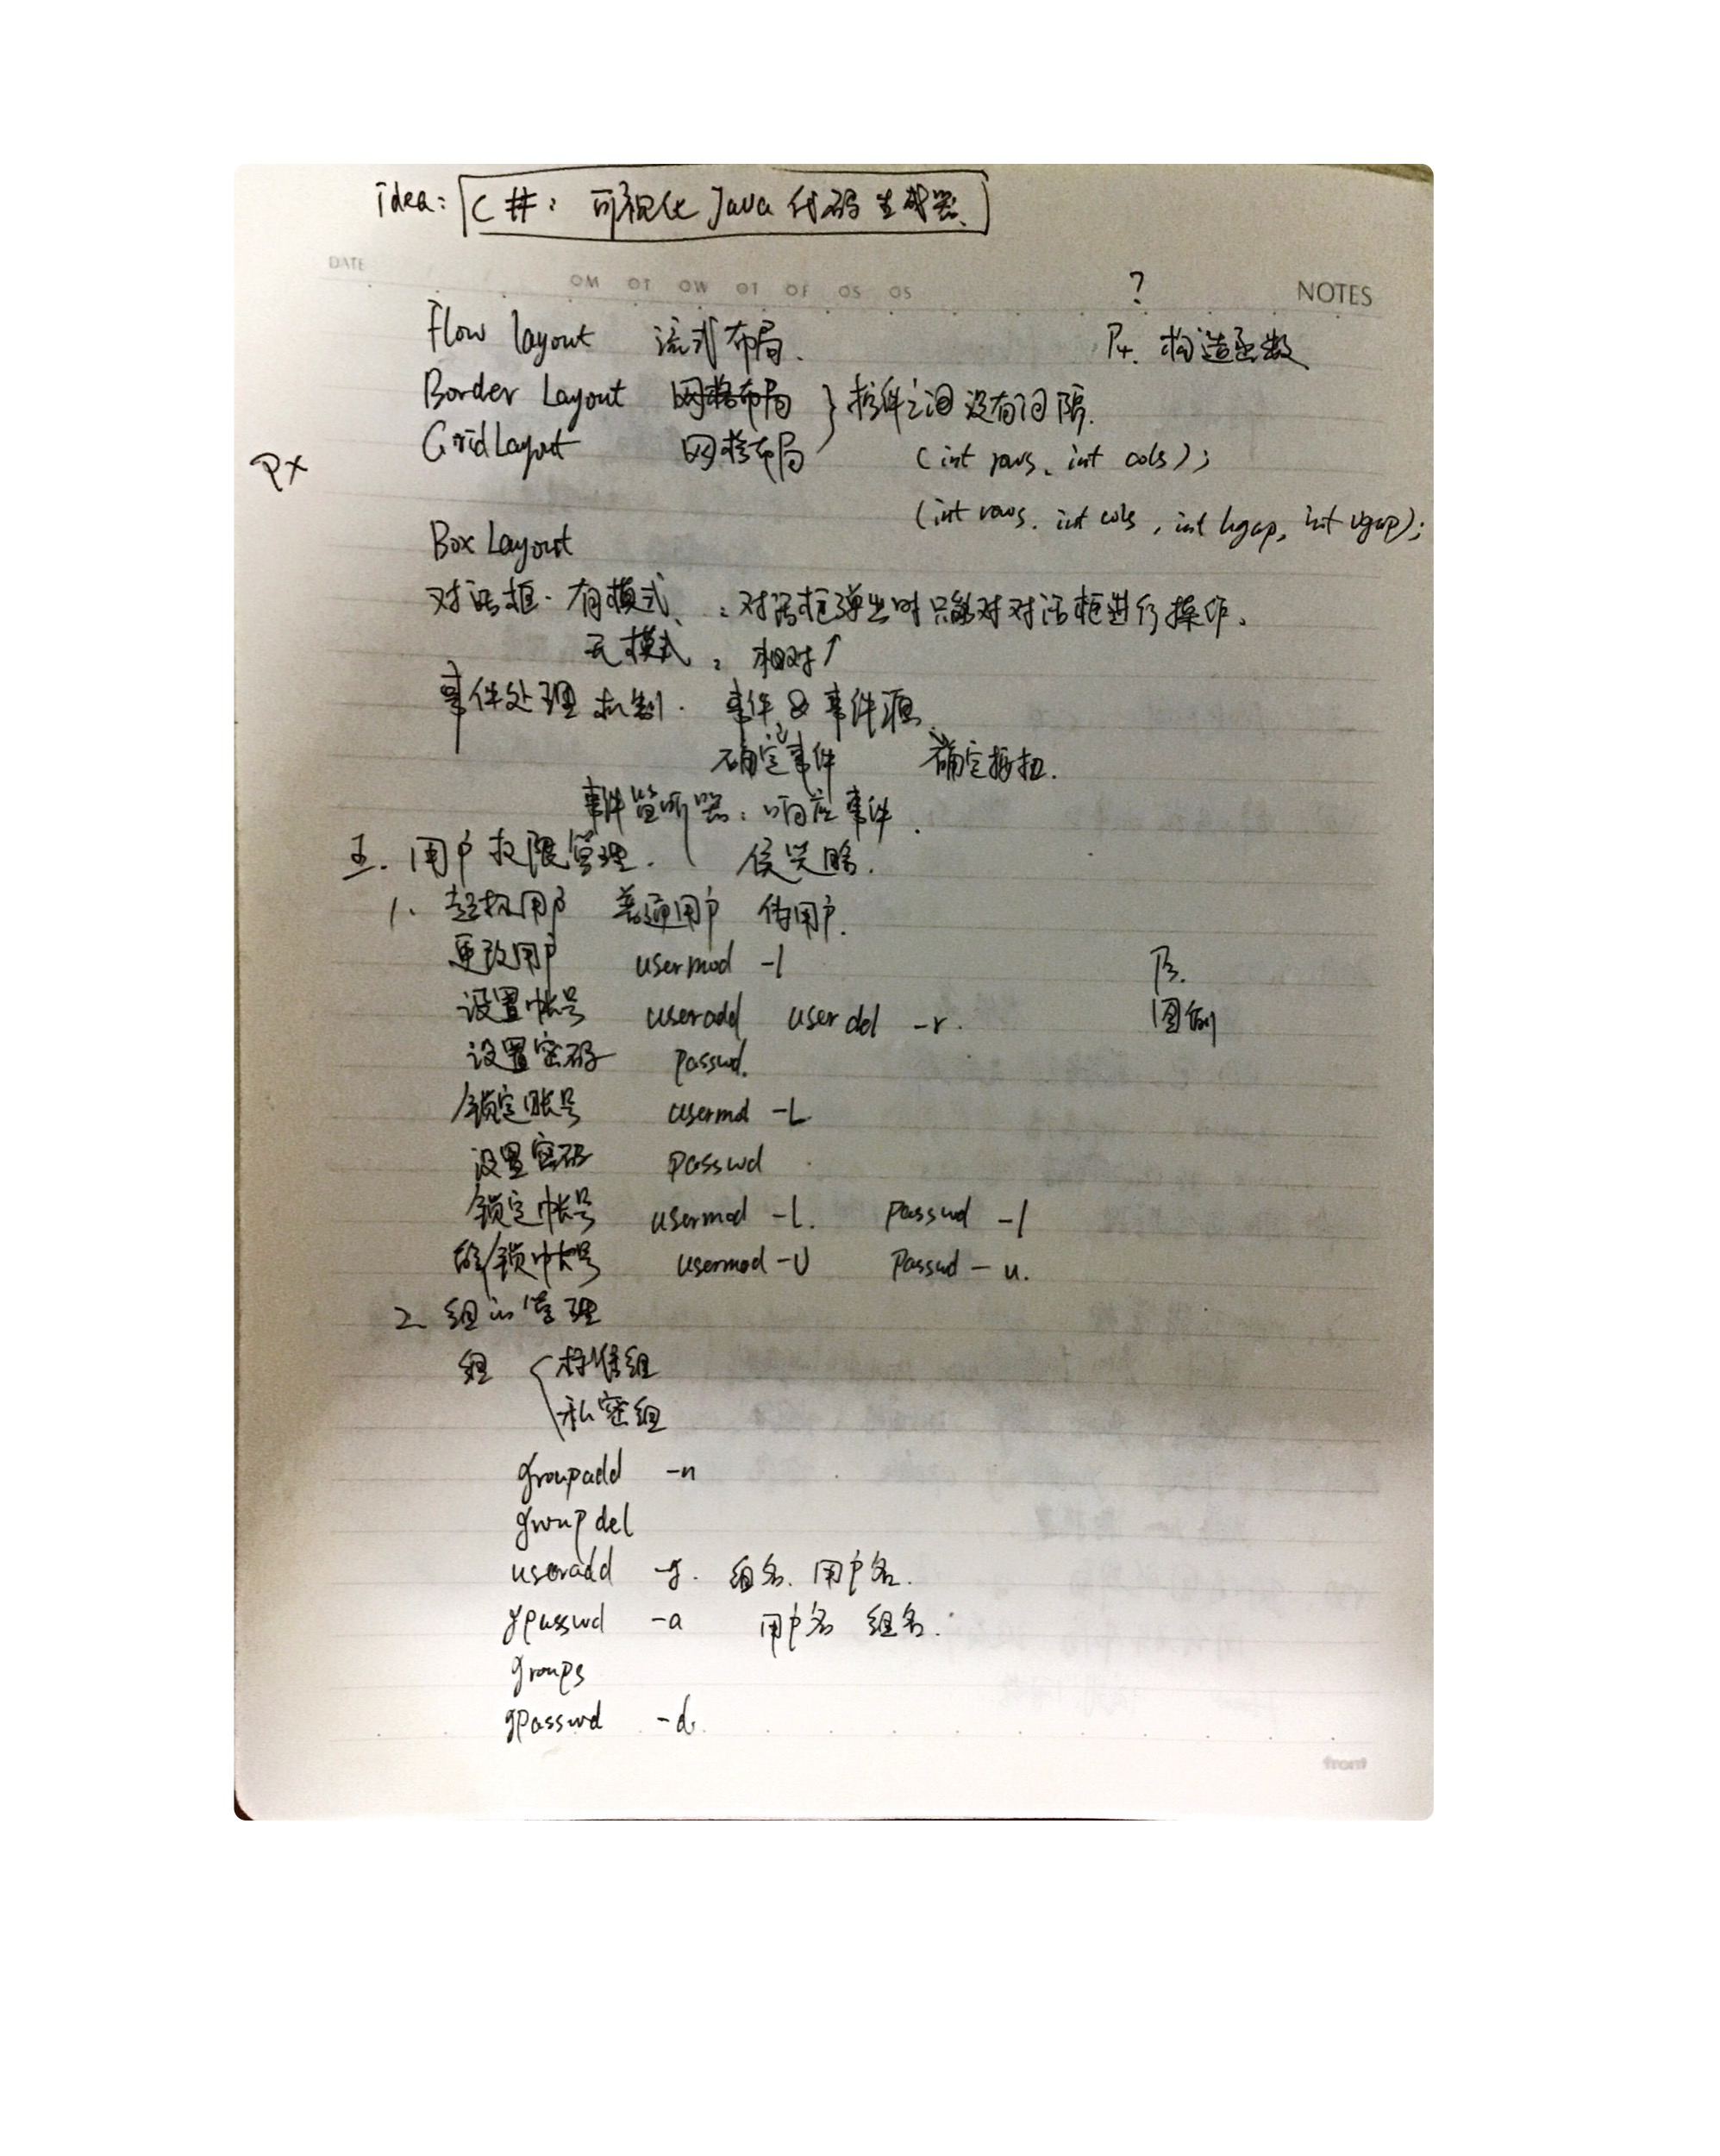 idea: C#: 可视化Java代码生成器
DATE
OM OT OW OT OF OS OS
NOTES
?
Flow layout 流式布局.
P4. 构造函数
Border Layout 网格布局 } 控件之间没有间隔.
GridLayout 网格布局
(int rows, int cols);
PX
(int rows, int cols, int hgap, int vgap);
Box Layout
对话框. 有模式、: 对话框弹出时只能对对话框进行操作.
无模式: 相对↑
事件处理机制. 事件 & 事件源.
确定事件 确定按扭.
事件监听器: 响应事件.
五. 用户权限管理.
1. 超级用户 普通用户 伪用户.
更改用户 usermod -l
设置帐号 useradd userdel -r.
图例
设置密码 passwd.
锁定账号 usermod -L
设置密码 passwd
锁定帐号 usermod -L. passwd -l
解锁帐号 usermod -U passwd -u.
2. 组的管理
组 { 标准组
私密组
groupadd -n
groupdel
useradd -g. 组名. 用户名.
gpasswd -a 用户名 组名.
groups
gpasswd -d.
front